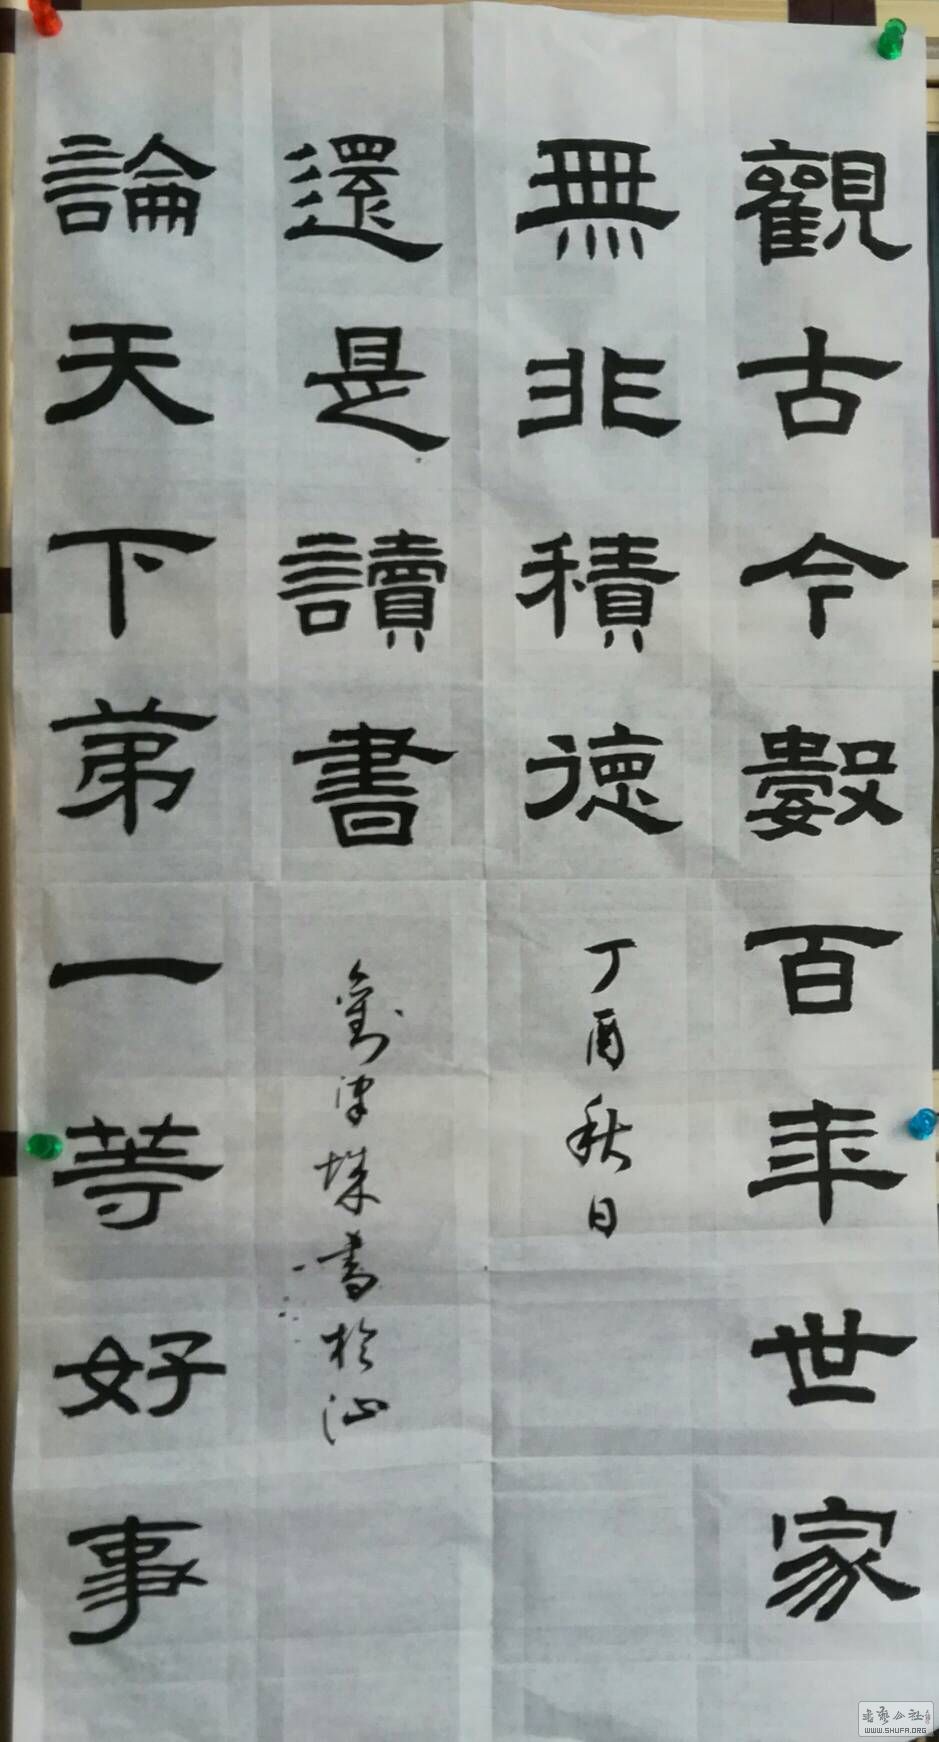 觀古今數百年世家
無非積德
丁酉秋日
論天下弟一等好事
還是讀書
劉書於汕
书艺公社
WWW.SHUFA.ORG